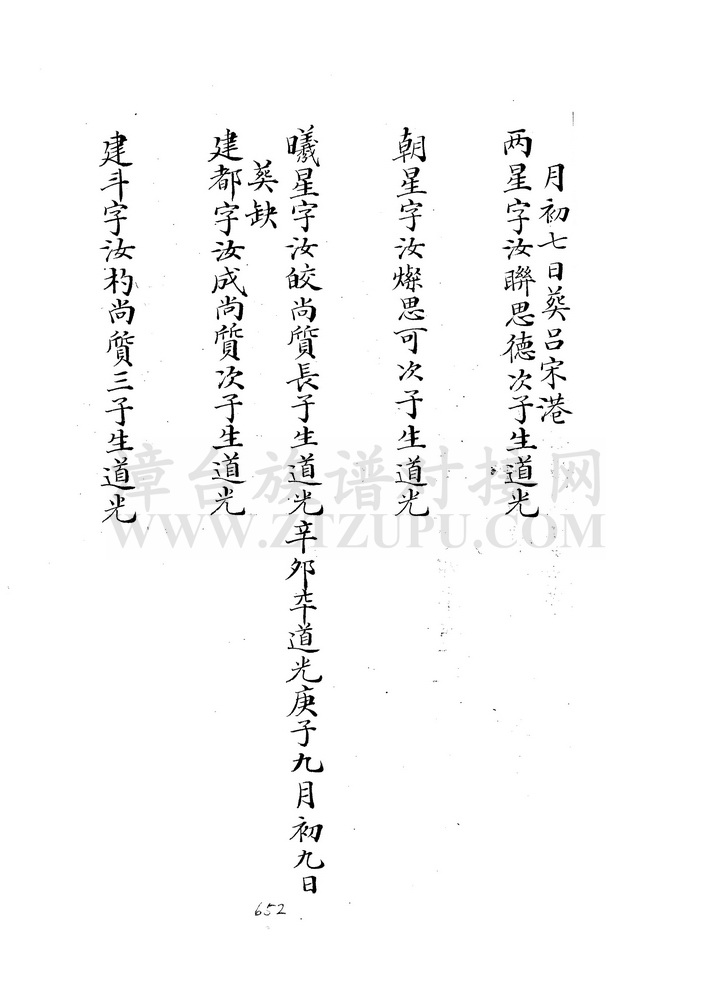 月初七日葵吕宋港
两星字汝聯思德次子生道光
朝星字汝燦思可次子生道光
曦星字汝皎尚質長子生道光辛夘卒道光庚子九月初九日
葵缺
建都字汝成尚質次子生道光
建斗字汝杓尚質三子生道光
章台族谱对接网
WWW.ZTZUPU.COM
652